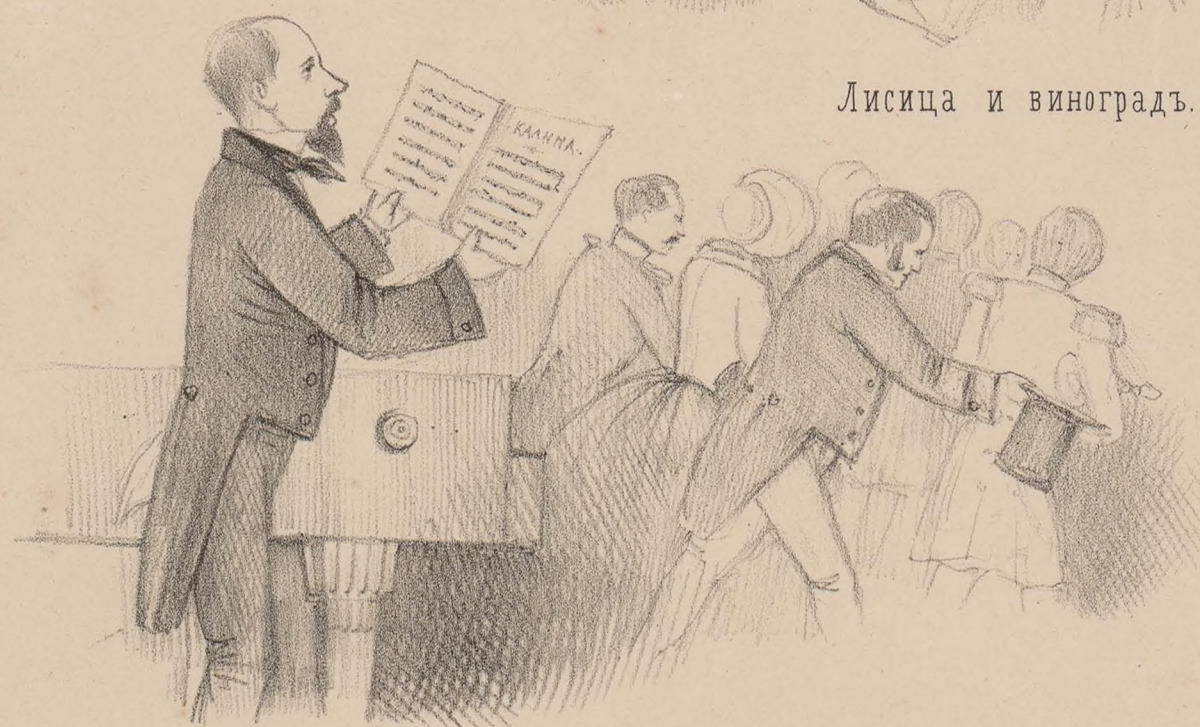 Лисица и виноградъ.
КАЛИНА.